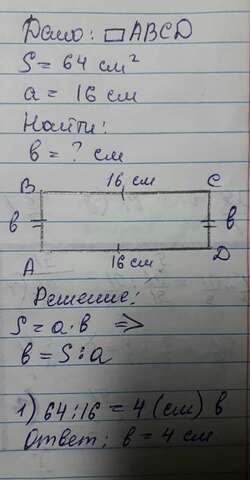 Дано: ▭ABCD
S = 64 см²
a = 16 см
Найти:
в = ? см
B 16 см C
в в
A 16 см D
Решение:
S = a · в ⇒
в = S : a
1) 64 : 16 = 4 (см) в
Ответ: в = 4 см